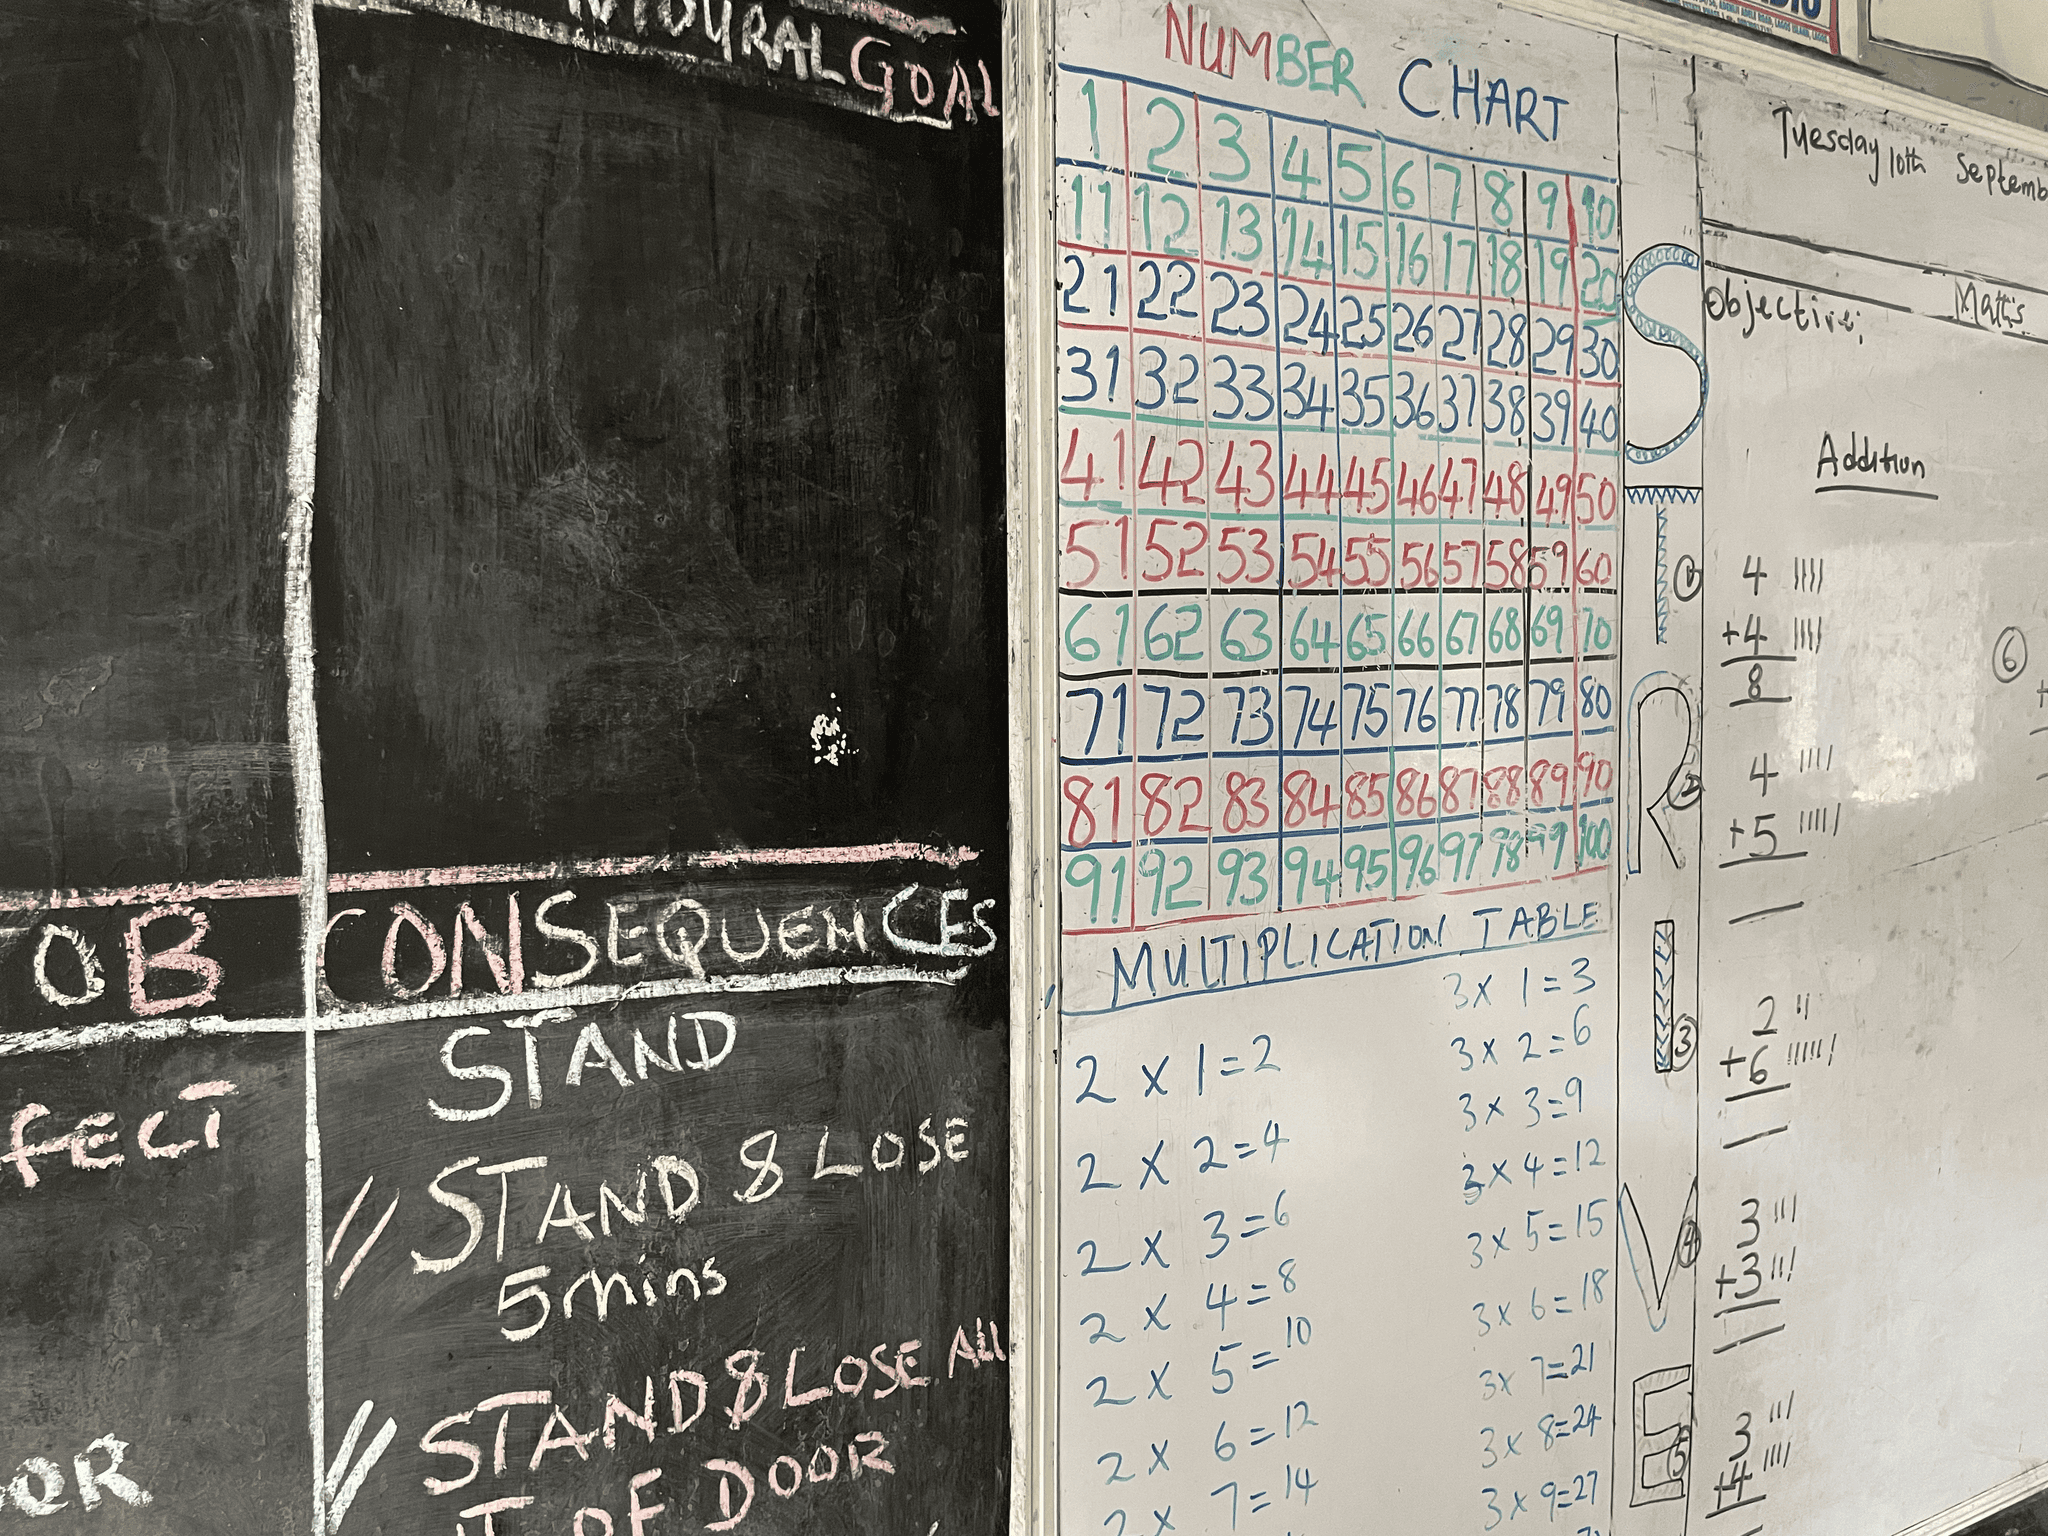 GOAL
OB
CONSEQUENCES
STAND
FECT
// STAND & LOSE
5mins
// STAND & LOSE All
OF DOOR
NUMBER CHART
1 2 3 4 5 6 7 8 9 10
11 12 13 14 15 16 17 18 19 20
21 22 23 24 25 26 27 28 29 30
31 32 33 34 35 36 37 38 39 40
41 42 43 44 45 46 47 48 49 50
51 52 53 54 55 56 57 58 59 60
61 62 63 64 65 66 67 68 69 70
71 72 73 74 75 76 77 78 79 80
81 82 83 84 85 86 87 88 89 90
91 92 93 94 95 96 97 98 99 100
MULTIPLICATION TABLE
2 x 1 = 2
2 x 2 = 4
2 x 3 = 6
2 x 4 = 8
2 x 5 = 10
2 x 6 = 12
2 x 7 = 14
3 x 1 = 3
3 x 2 = 6
3 x 3 = 9
3 x 4 = 12
3 x 5 = 15
3 x 6 = 18
3 x 7 = 21
3 x 8 = 24
3 x 9 = 27
STRIVE
Tuesday 10th Septemb
Maths
Objective;
Addition
① 4 ||||
+4 ||||
8
② 4 ||||
+5 |||||
③ 2 ||
+6 ||||||
④ 3 |||
+3 |||
⑤ 3 |||
+4 ||||
⑥
+